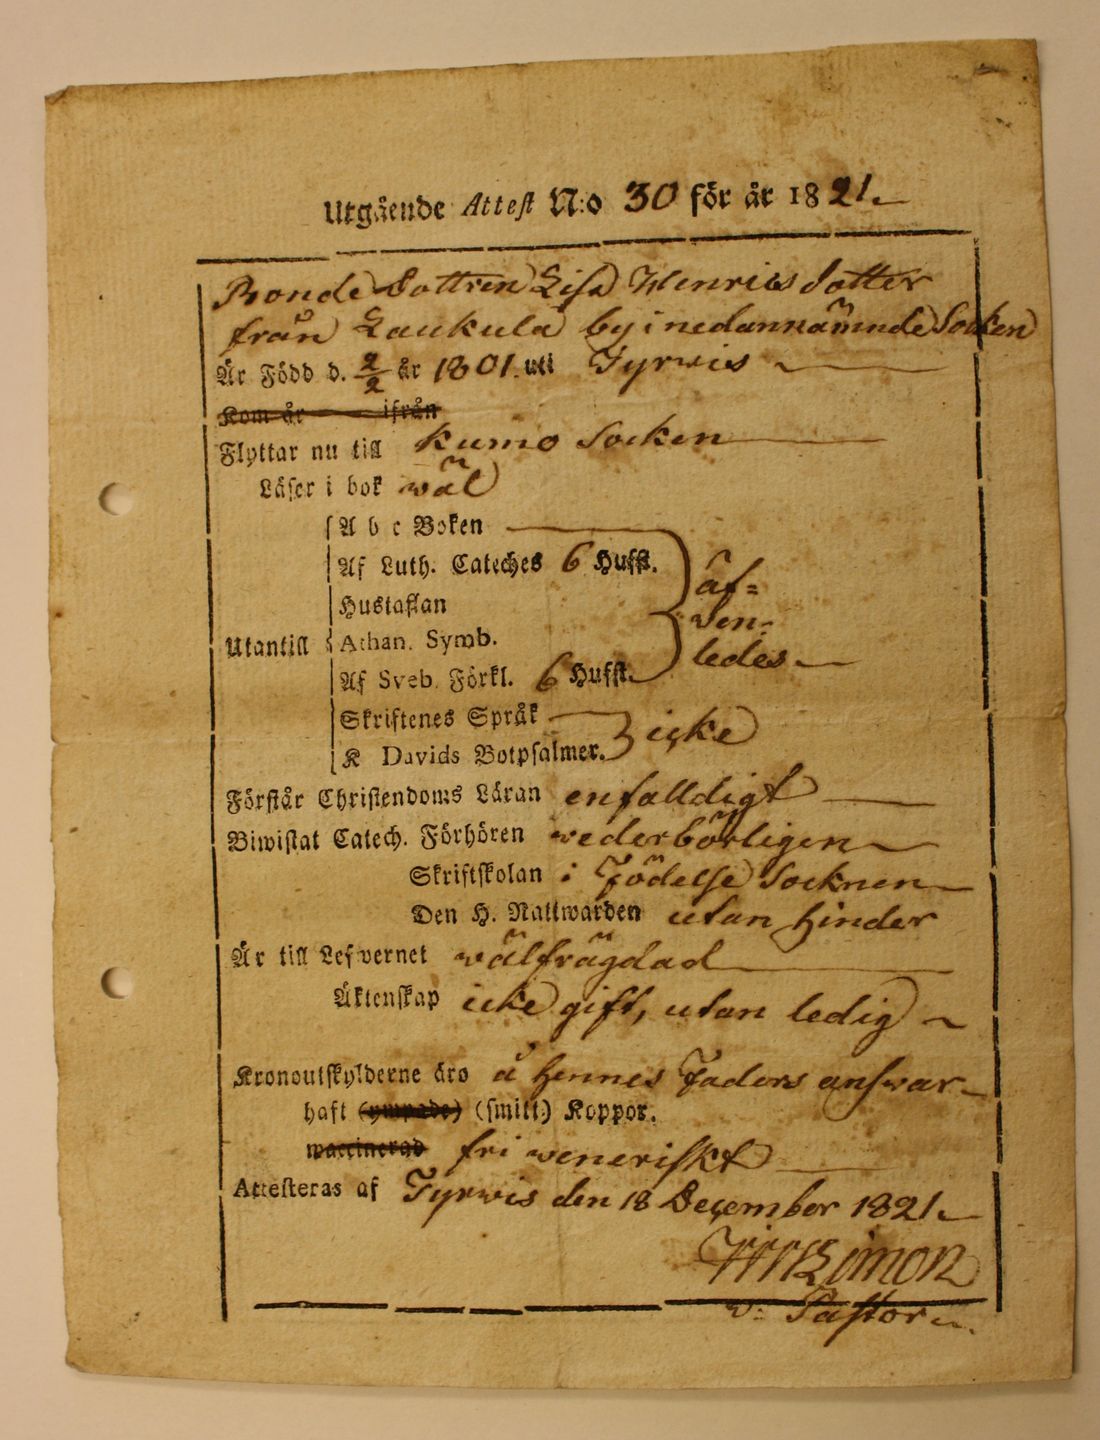 Utgående Attest N:o 30 för år 1821.
Bonde Dottren Lisa Henrics dotter
från Laukula by i nedannämnde Socken
Är Född d. 2/2 år 1801. uti Tyrwis
Kom år ifrån
Flyttar nu till Kumo Socken
Läser i bok wäl
A b c Boken
Af Luth. Cateches 6 Hufst.
Hustaflan
Utantill Athan. Symb.
Af Sveb. Förkl. 6 Hufst.
äf=
ven=
ledes
Skriftenes Språk
K Davids Botpsalmer.
icke
Förstår Christendoms Läran enfalldigt
Biwistat Catech. Förhören wederbörligen
Skriftskolan i Födelse Socknen
Den H. Nattwarden utan hinder
Är till Lefvernet wälfrägdad
Äktenskap icke gift, utan ledig
Kronoutskylderne äro å hennes Faders answar
haft (ympade) (smitt.) Koppor.
waccinerad fri veneriskt
Attesteras af Tyrwis den 18 December 1821.
v: Pastor